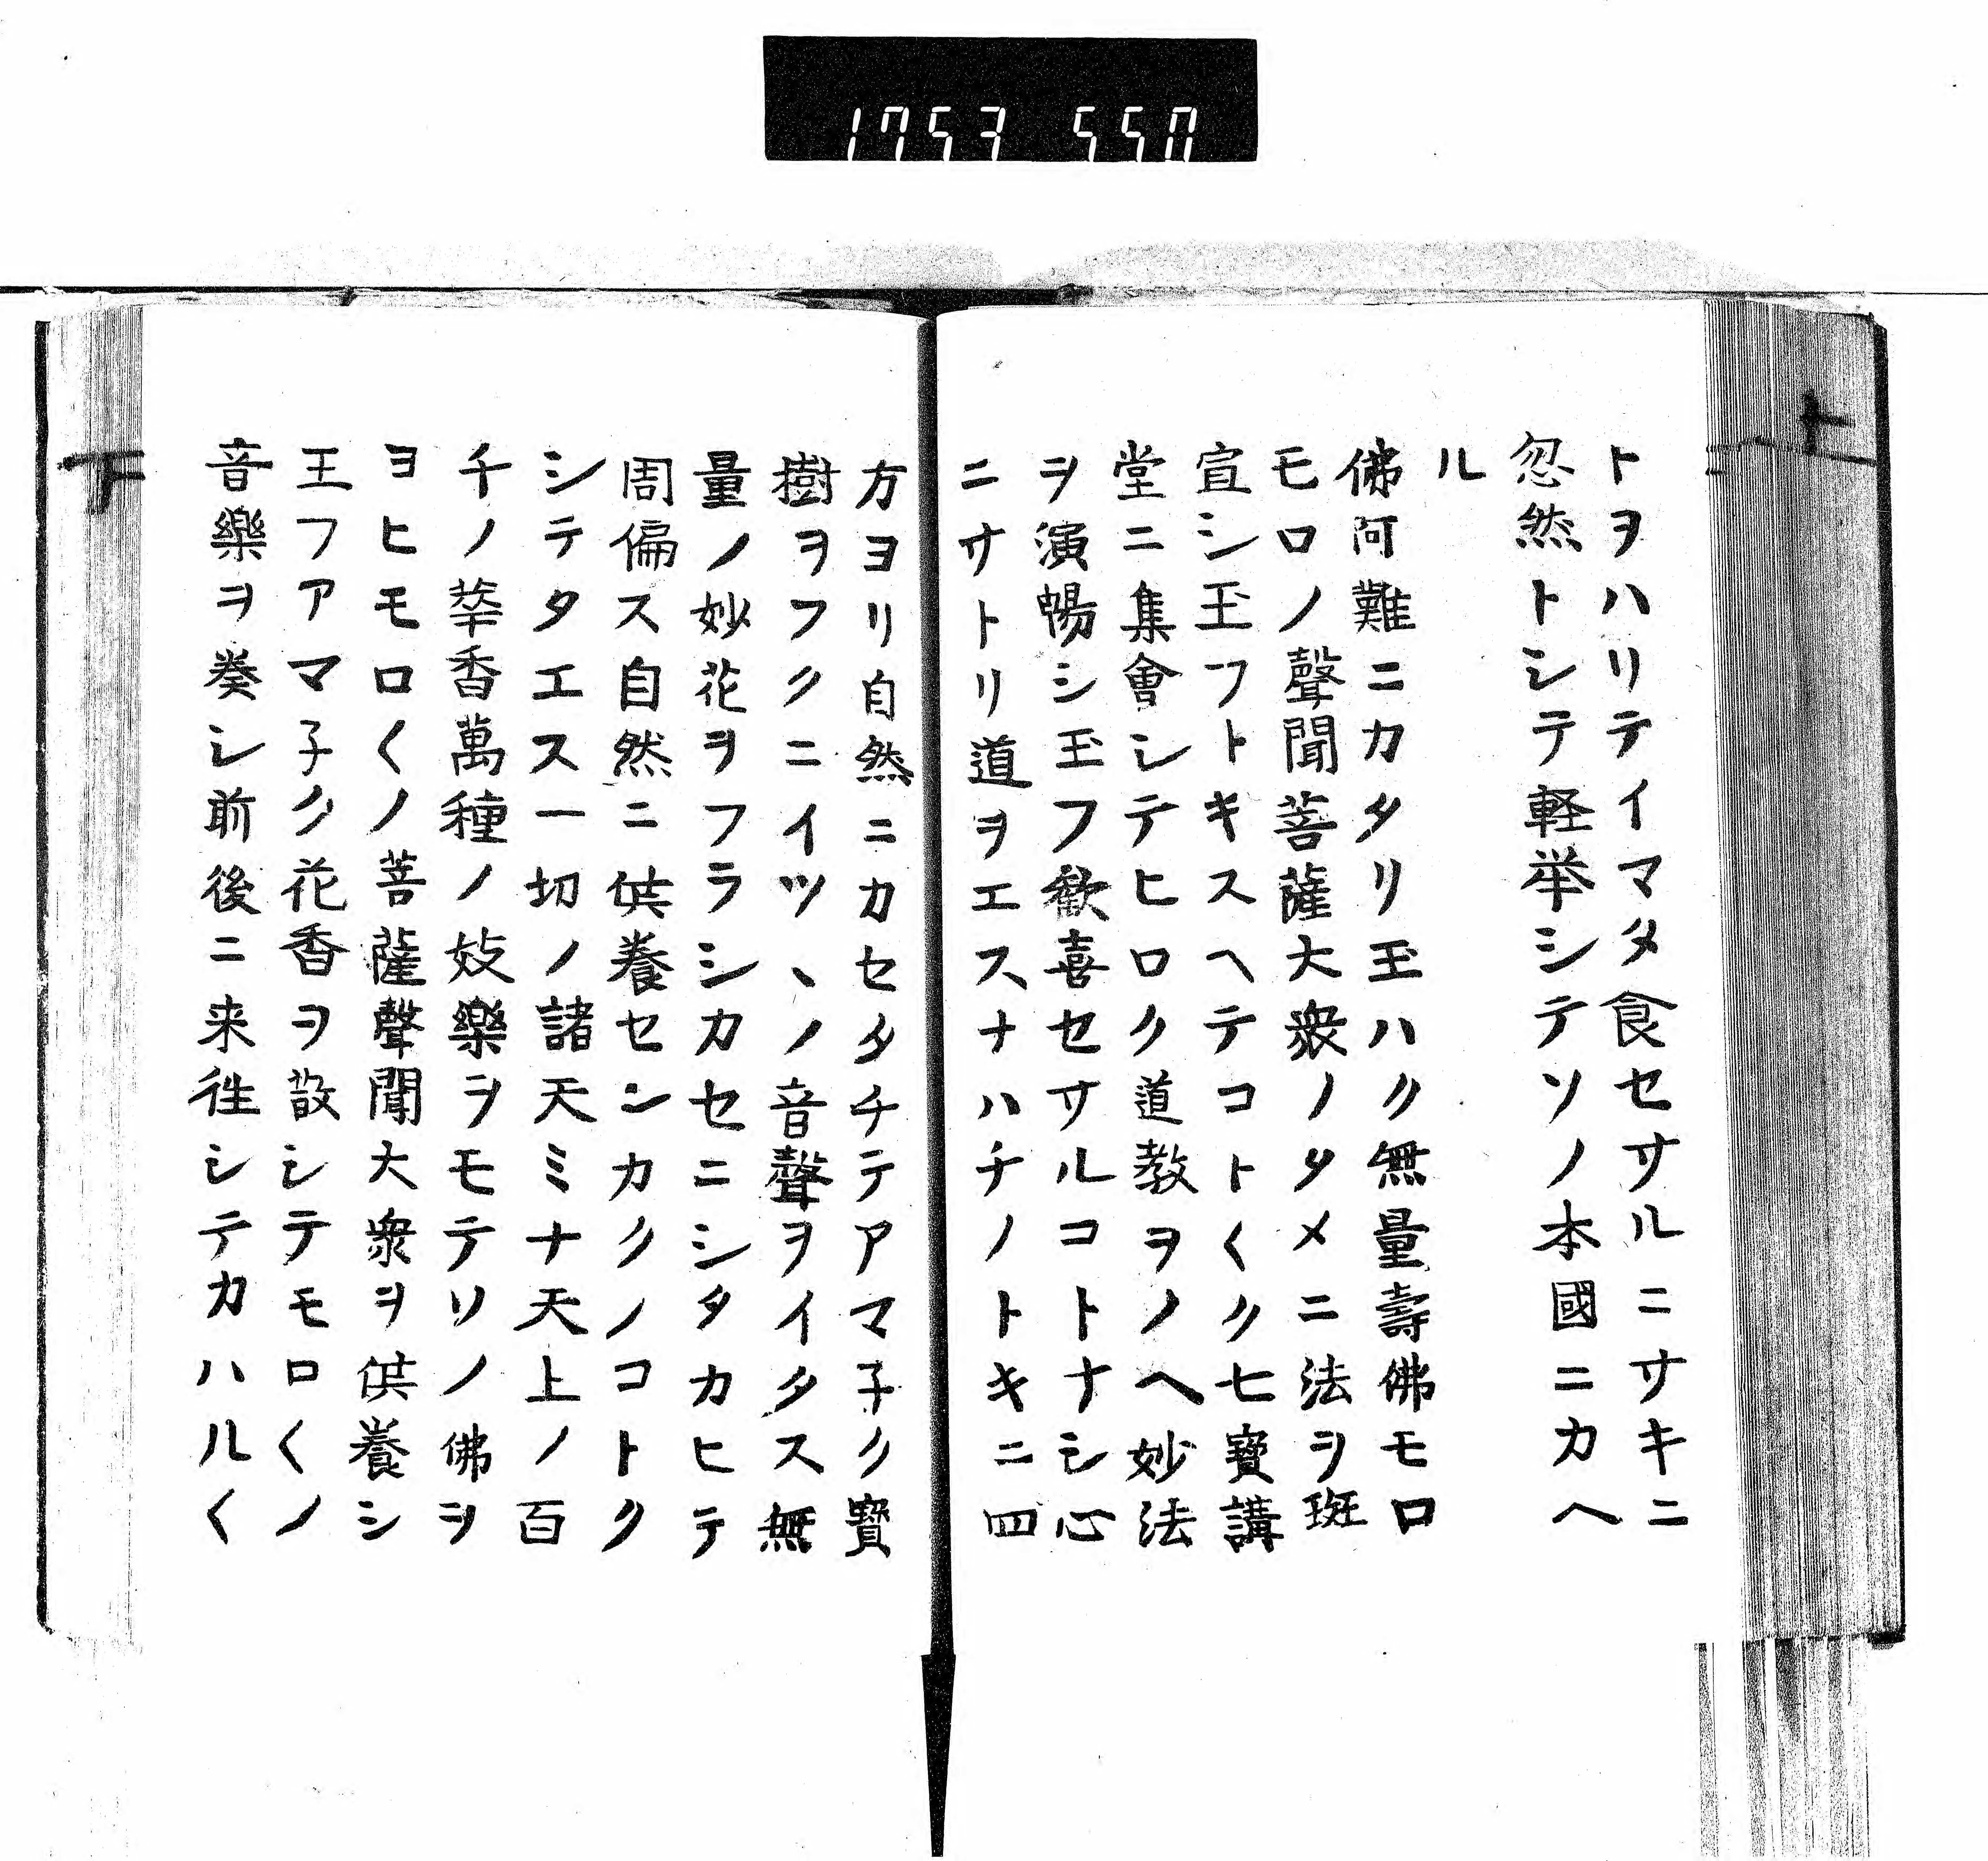 1753 550
トヲハリテイマタ食セサルニサキニ
忽然トシテ軽挙シテソノ本國ニカヘ
ル
佛阿難ニカタリ玉ハク無量壽佛モロ
モロノ聲聞菩薩大衆ノタメニ法ヲ斑
宣シ玉フトキスヘテコト〱ク七寳講
堂ニ集會シテヒロク道教ヲノヘ妙法
ヲ演暢シ玉フ歓喜セサルコトナシ心
ニサトリ道ヲエスナハチノトキニ四
方ヨリ自然ニカセタチテアマ子ク寳
樹ヲフクニイツヽノ音聲ヲイタス無
量ノ妙花ヲフラシカセニシタカヒテ
周偏ス自然ニ供養センカクノコトク
シテタエス一切ノ諸天ミナ天上ノ百
千ノ華香萬種ノ妓樂ヲモテソノ佛ヲ
ヨヒモロ〱ノ菩薩聲聞大衆ヲ供養シ
玉フアマ子ク花香ヲ散シテモロ〱ノ
音樂ヲ奏シ前後ニ来徃シテカハル〱
下